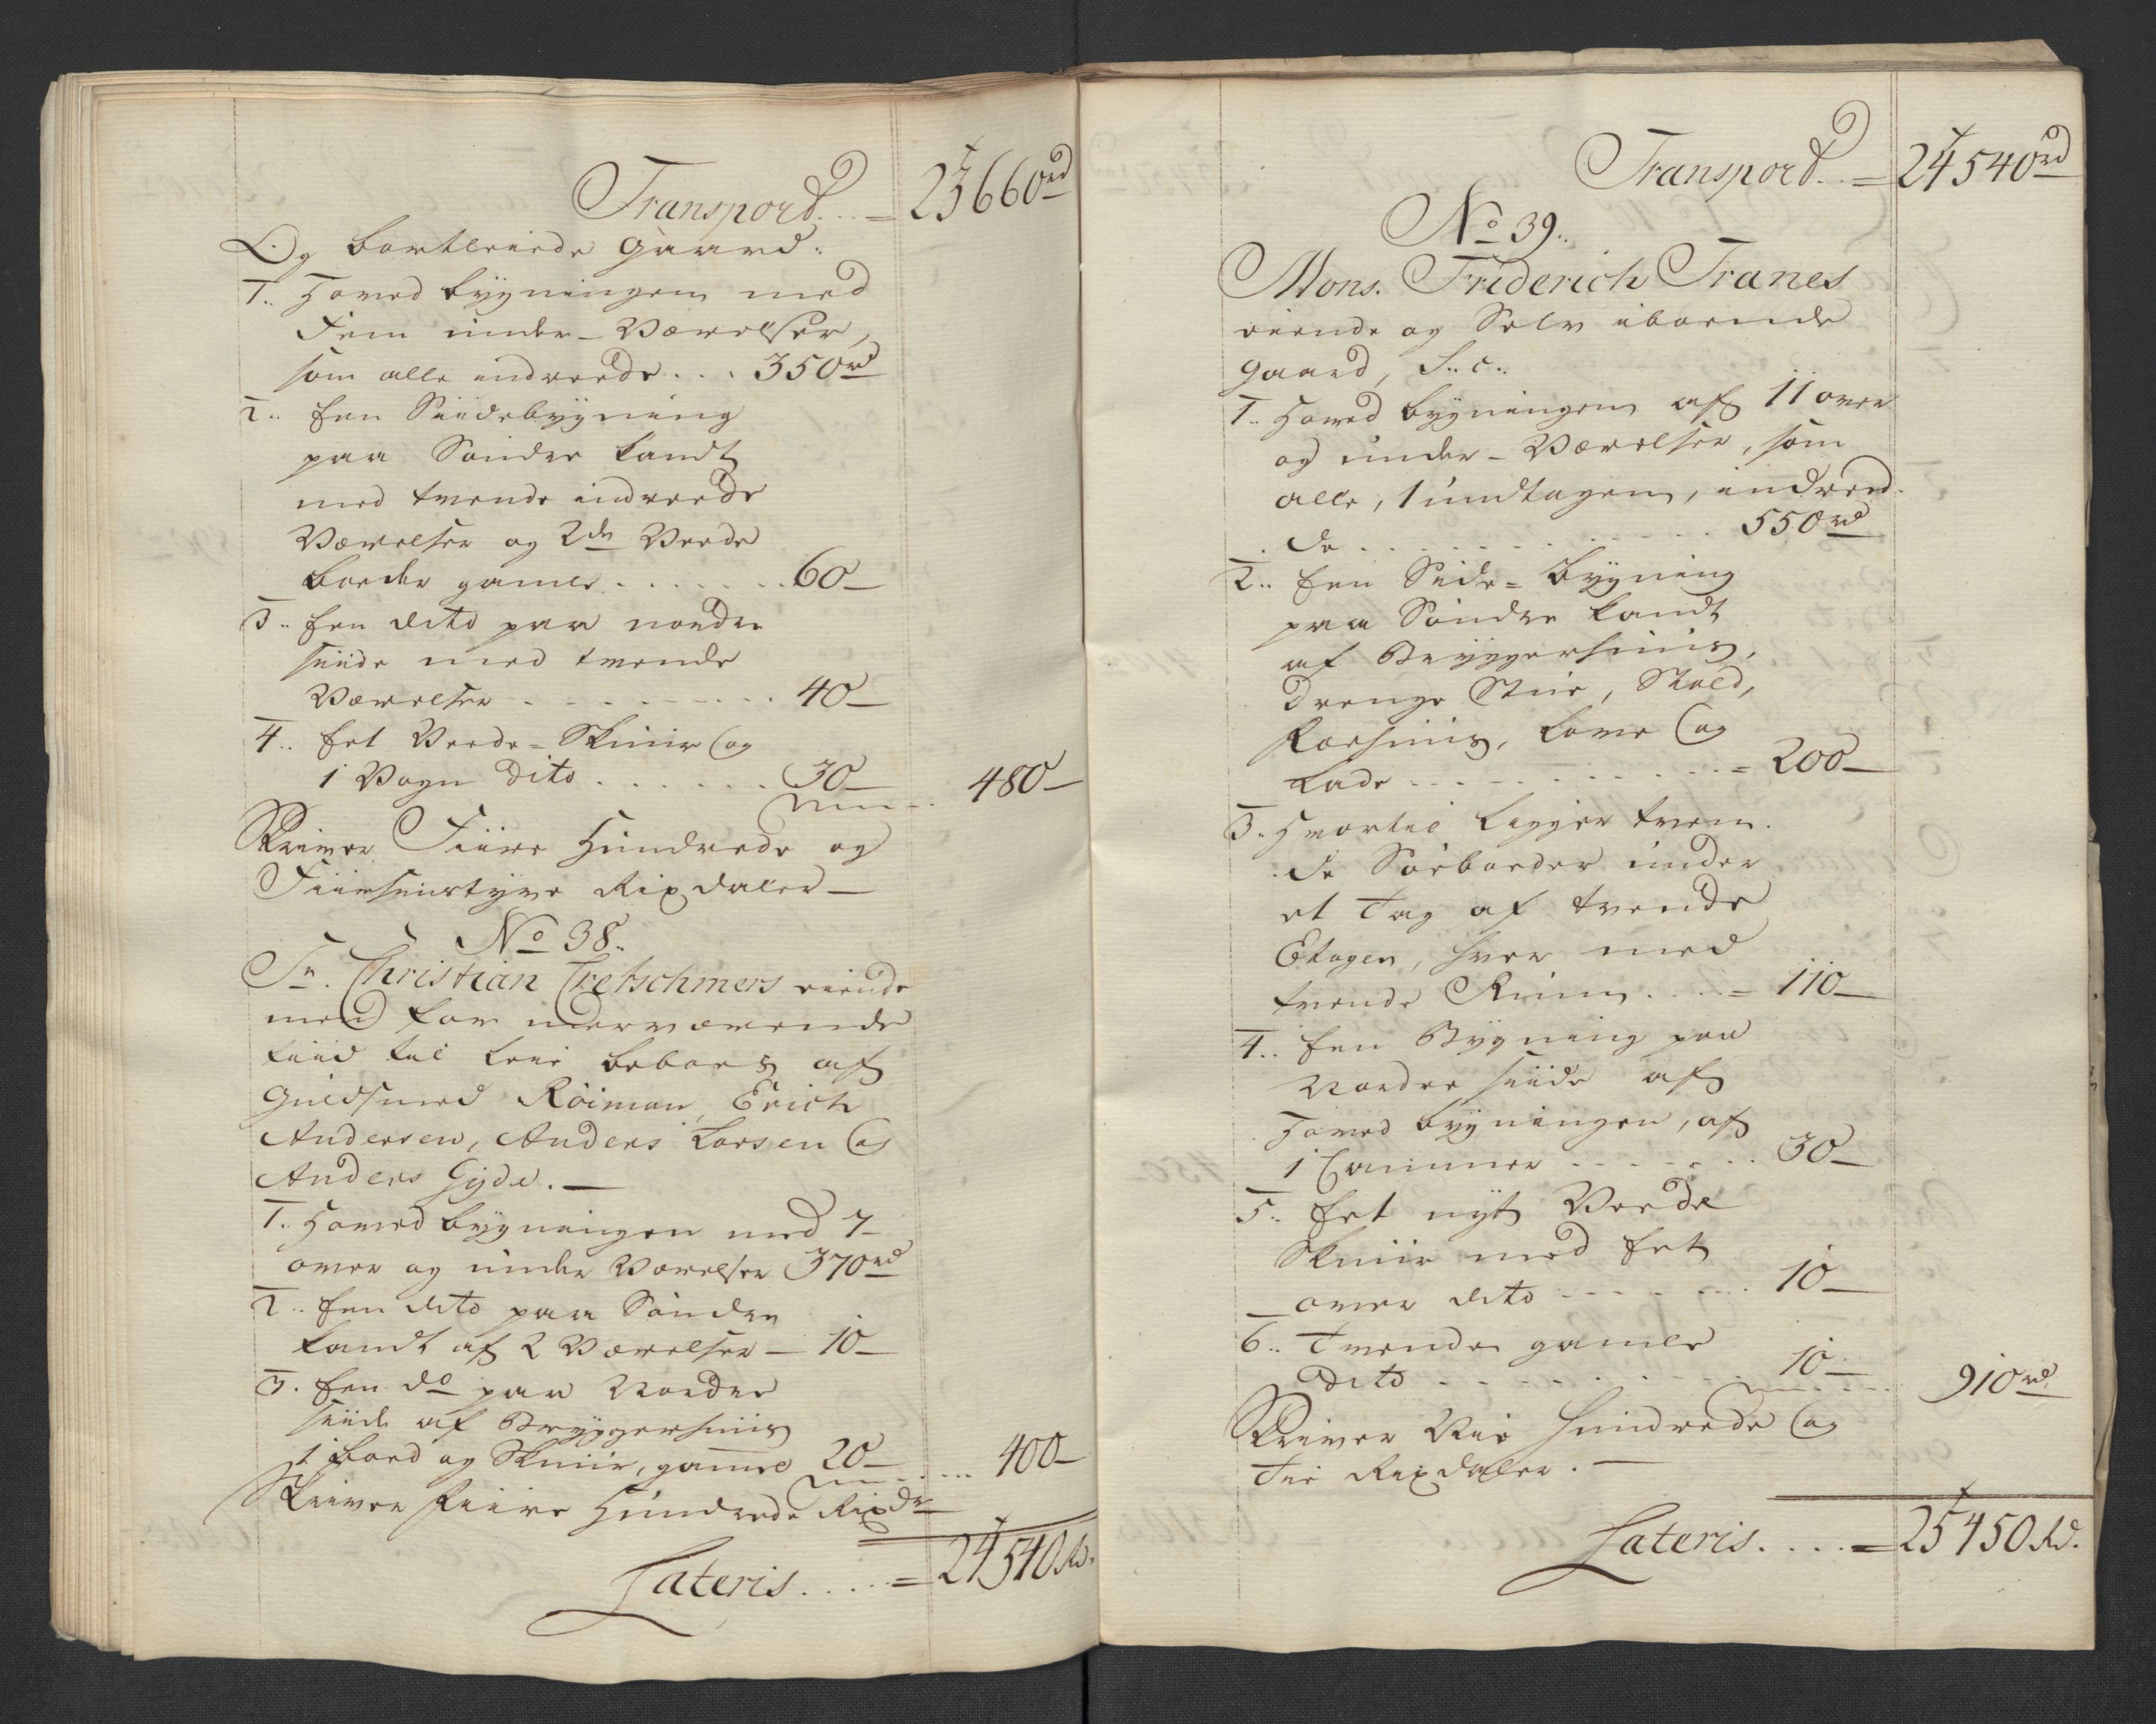 Transport. . . = 23660rd
Og bortleiede Gaard:
1.. Hoved bygningen med
Fem under-Værelser,
som alle indreede. . . 350rd
2.. Een Siidebygning
paa Søndre kandt
med tvende indreede
Værelser og 2de Veede
boeder gamle. . . . . . . 60_
3.. Een dito paa nordre
siide med tvende
Værelser . . . . . . . . . 40_
4.. Eet Veede=Skuur og
1 Vogn dito . . . . . . . 30_ 480_
Skriver Fiire Hundrede og
Fiiresindstyve Rixdaler_
No 38..
Sr. Christian Cretschmers eiende
men for nærværende
tiid til leie beboes af
Guldsmed Röiman, Erich
Andersen, Anders Larsen og
Anders Gyde. _
1.. Hoved bygningen med 7
over og under Værelser 370rd
2.. Een dito paa Søndre
kandt af 2 Værelser _ 10_
3. Een do paa Nordre
siide af Bryggerhuus
1 boed og Skuur, gammel 20_ 400_
Skriver Fiire Hundrede Rixdr
Lateris. . . . . = 24540 Rd.
Transport. . = 24540rd
No 39..
Mons. Friderich Tranes
eiende og Selv iboende
gaard, S.. c..
1.. Hoved bygningen af 11 over
og under-Værelser, som
alle, 1 undtagen, indreed-
de . . . . . . . . . . . 550rd
2.. Een Side=bygning
paa Søndre kandt
af Bryggerhuus,
Drenge Stue, Stald,
Foehuus, Love og
Lade . . . . . . . . . . = 200_
3.. Hvortil ligger tven-
de Søeboeder under
et Tag af tvende
Etager, hver med
tvende Ruum. . . . = 110_
4.. Een Bygning paa
Nordre siide af
Hoved bygningen, af
1 Cammer . . . . . . . 30_
5.. Eet nyt Veede
Skuur med Eet
over dito . . . . . . . 10_
6.. Tvende gamle
dito . . . . . . . . . . 10_ 910rd
Skriver Nie hundrede og
Tie Rixdaler. _
Lateris. . . . = 25450 Rd.